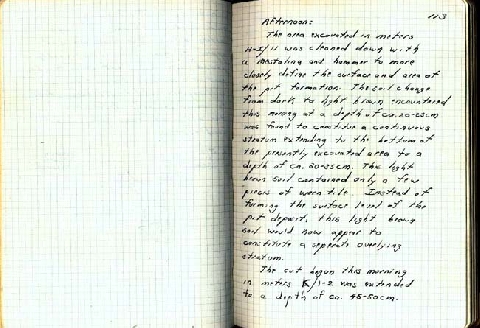 113
Afternoon:
The area excavated in meters
was cleaned down with
a and hammer to more
closely define the surface and area of
the pit formation. The soil change
from dark to light brown encountered
this morning at a depth of ca. 20-25cm
was found to constitute a continuous
stratum extending to the bottom of
the presently excavated area to a
depth of ca. 50-55cm. This light
brown soil contained only a few
pieces of worn tile. Instead of
forming the surface level of the
pit deposit, this light brown
soil would now appear to
constitute a separate overlying
stratum.
The cut begun this morning
in meters K/1-2 was extended
to a depth of ca. 45-50cm.